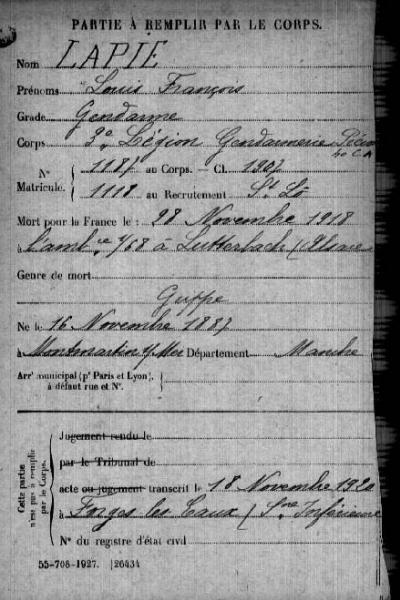 PARTIE À REMPLIR PAR LE CORPS.
Nom LAPIE
Prénoms Louis François
Grade Gendarme
Corps 3e Légion Gendarmerie
N° Matricule. 1187 au Corps. — Cl. 1907
1118 au Recrutement St Lô
Mort pour la France le : 28 Novembre 1918
à l'amb.ce 1/68 à Lutterbach (Alsace
Genre de mort
Grippe
Né le 16 Novembre 1887
à Montmartin s/Mer Département Manche
Arrt municipal (pr Paris et Lyon),
à défaut rue et N°.
Cette partie n'est pas à remplir par le Corps.
Jugement rendu le
par le Tribunal de
acte ou jugement transcrit le 18 Novembre 1920
à Forges les Eaux (Sne Inférieure
N° du registre d'état civil
55-708-1927. [26434